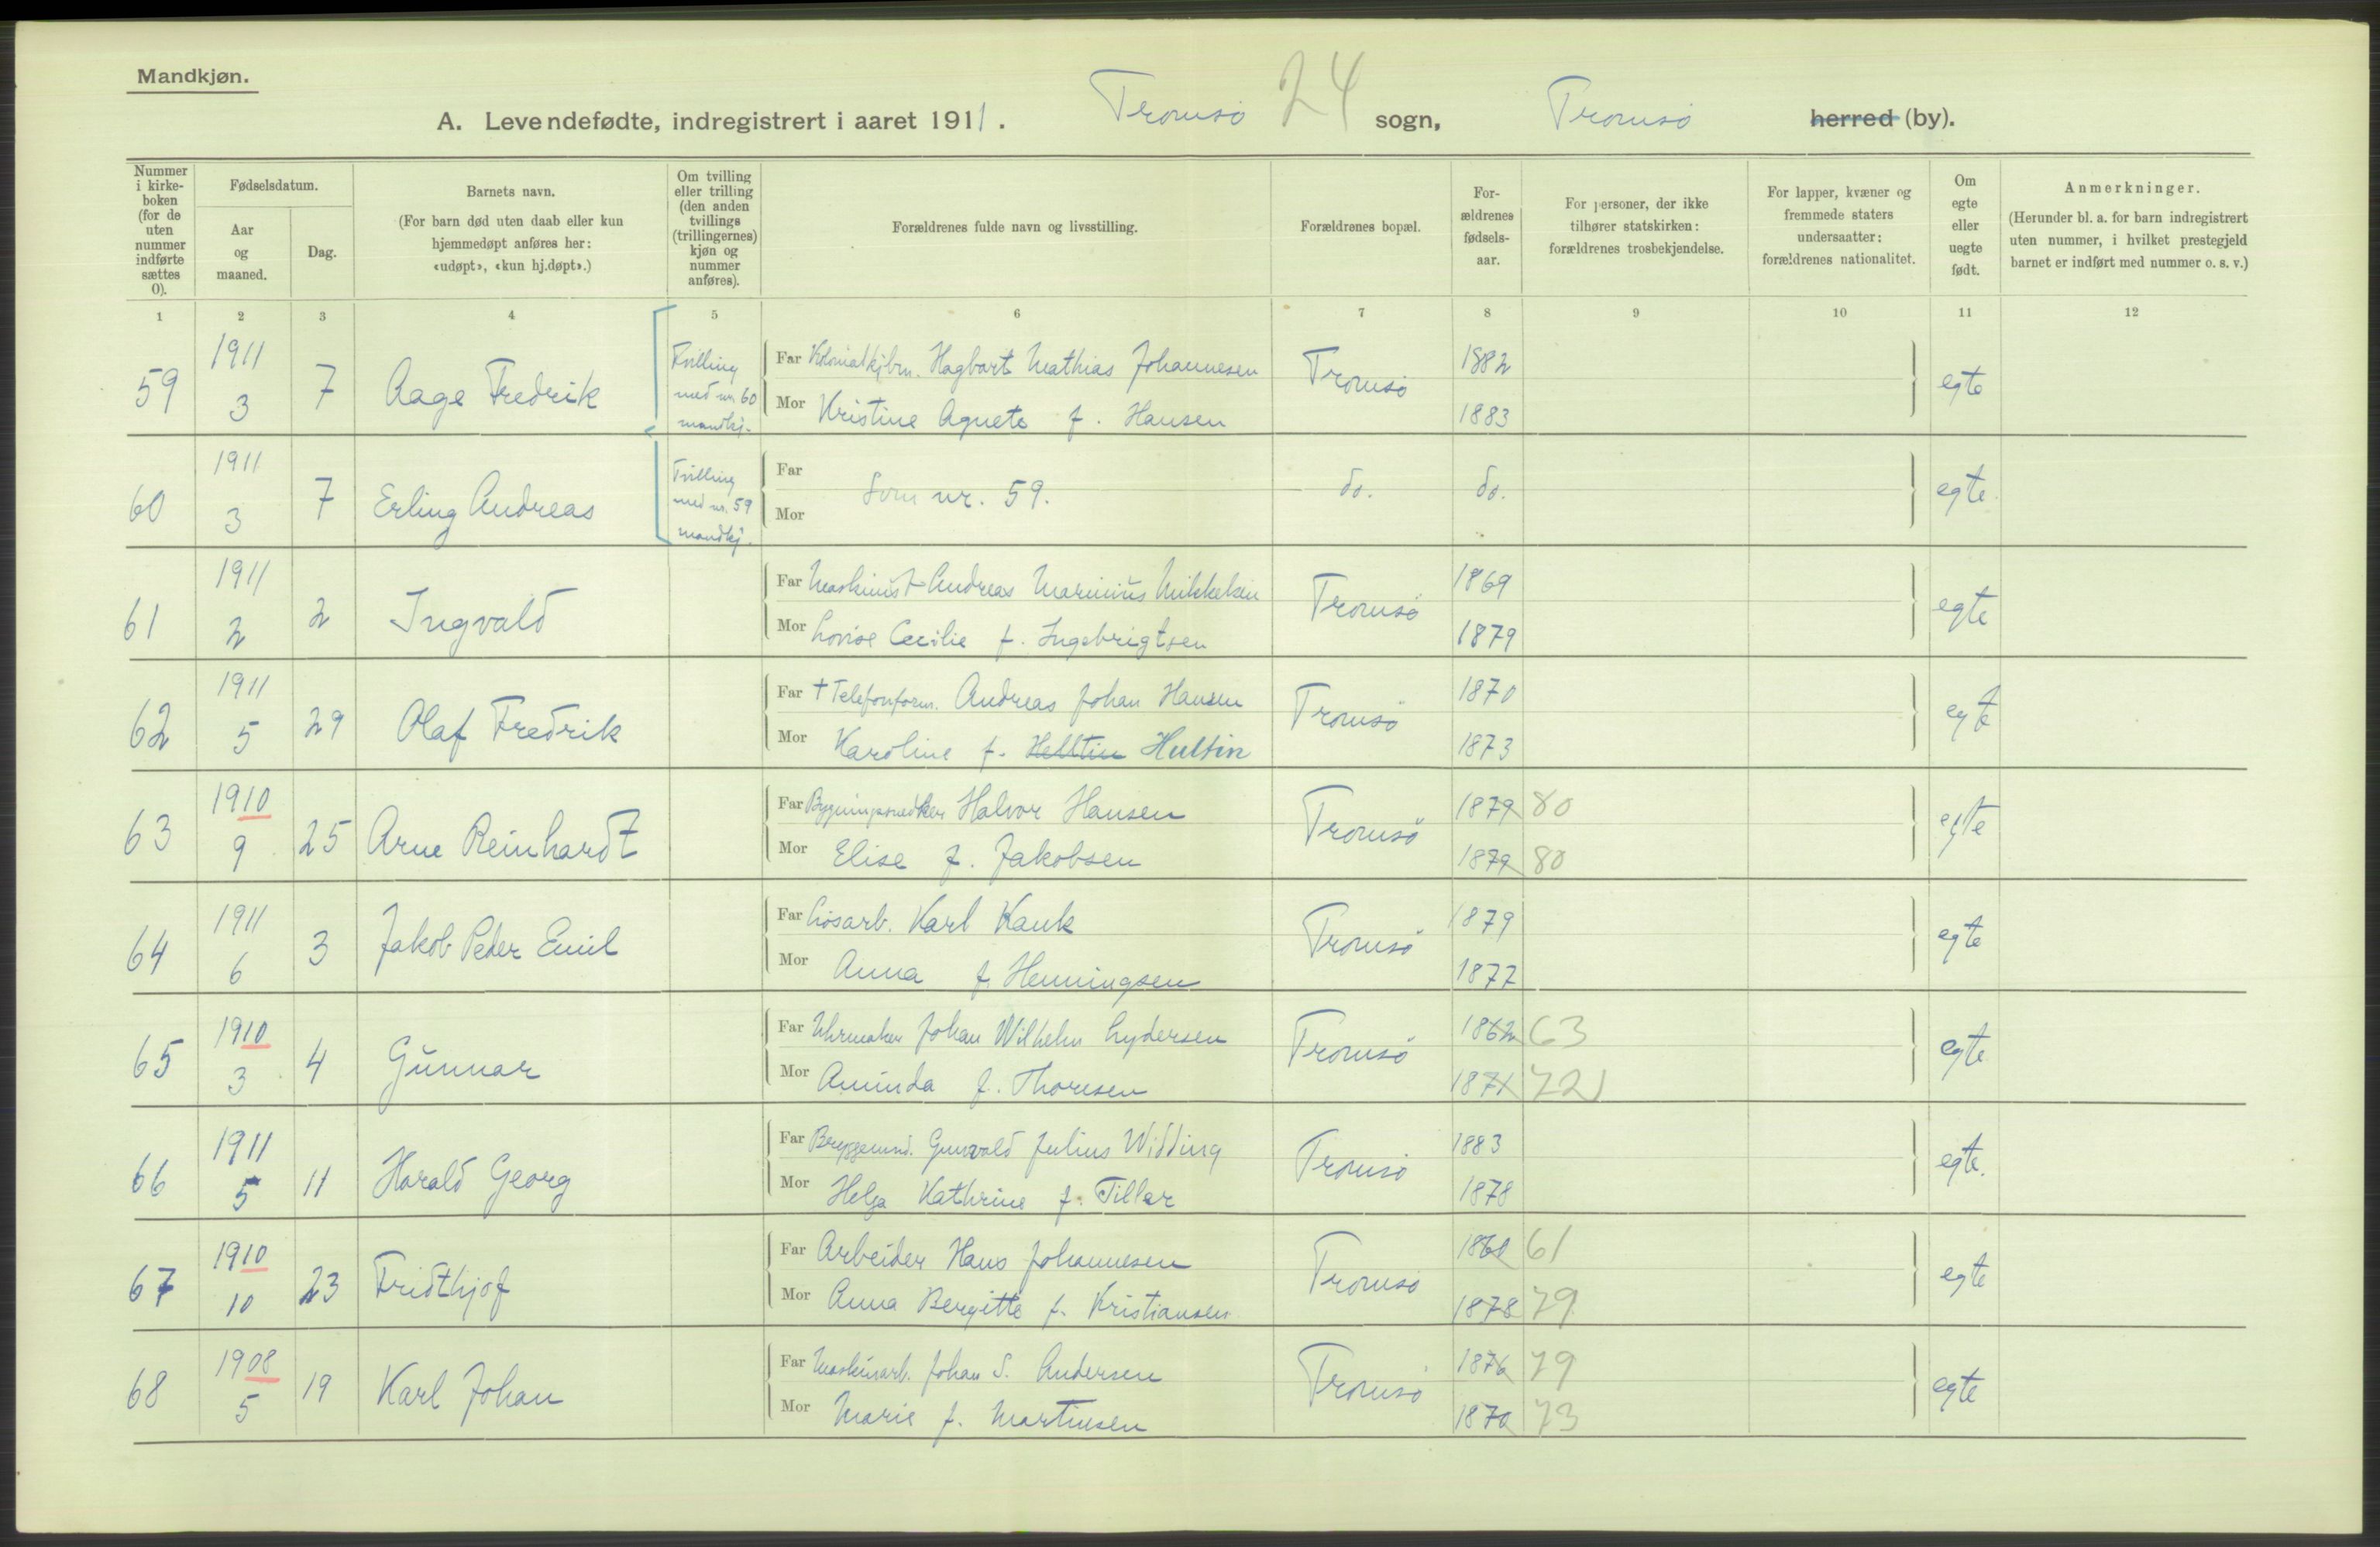 Mandkjøn.
A. Levendefødte, indregistrert i aaret 1911. Tromsö 24 sogn, Tromsö herred (by).
Nummer i kirkeboken (for de uten nummer indførte sættes 0).
Fødselsdatum.
Aar og maaned.
Dag.
Barnets navn.
(For barn død uten daab eller kun hjemmedøpt anføres her: «udøpt», «kun hj.døpt».)
Om tvilling eller trilling (den anden tvillings (trillingernes) kjøn og nummer anføres).
Forældrenes fulde navn og livsstilling.
Forældrenes bopæl.
Forældrenes fødselsaar.
For personer, der ikke tilhører statskirken: forældrenes trosbekjendelse.
For lapper, kvæner og fremmede staters undersaatter: forældrenes nationalitet.
Om egte eller uegte født.
Anmerkninger.
(Herunder bl. a. for barn indregistrert uten nummer, i hvilket prestegjeld barnet er indført med nummer o. s. v.)
1 2 3 4 5 6 7 8 9 10 11 12
59 1911 3 7 Aage Fredrik Tvilling med nr. 60 mandkj.
Far Kolonialkjbm. Hagbart Mathias Johannesen Tromsö 1882 egte
Mor Kristine Agnete f. Hansen 1883
60 1911 3 7 Erling Andreas Tvilling med nr. 59 mandkj.
Far Mor Som nr. 59. do. do. egte
61 1911 2 2 Ingvald
Far Maskinist Andreas Marinius Mikkelsen Tromsö 1869 egte
Mor Lovise Cecilie f. Ingebrigtsen 1879
62 1911 5 29 Olaf Fredrik
Far † Telefonform. Andreas Johan Hansen Tromsö 1870 egte
Mor Karoline f. Helltin Hultin 1873
63 1910 9 25 Arne Reinhardt
Far Bygningssnedker Halvor Hansen Tromsö 1879 80 egte
Mor Elise f. Jakobsen 1879 80
64 1911 6 3 Jakob Peder Emil
Far Løsarb. Karl Kauk Tromsö 1879 egte
Mor Anna f. Henningsen 1877
65 1910 3 4 Gunnar
Far Uhrmaker Johan Wilhelm Lydersen Tromsö 1862 63 egte
Mor Aminda f. Thoresen 1871 72
66 1911 5 11 Harald Georg
Far Gunvald Julius Widding Tromsö 1883 egte.
Mor Helga Kathrine f. Tiller 1878
67 1910 10 23 Fridthjof
Far Arbeider Hans Johannesen Tromsö 1860 61 egte
Mor Anna Bergitte f. Kristiansen 1878 79
68 1908 5 19 Karl Johan
Far Maskinarb. Johan S. Andersen Tromsö 1876 79 egte
Mor Marie f. Martinsen 1870 73